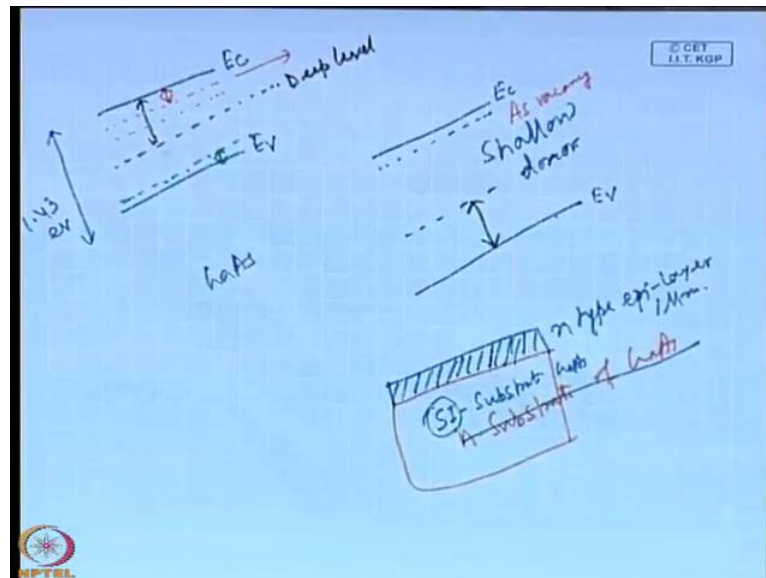 © CET
I.I.T. KGP
Ec
Deep level
Ev
1.43
ev
GaAs
Ec
As vacancy
Shallow
donor
Ev
n type epi-layer
1 μm.
SI - Substrate GaAs
A Substrate of GaAs
NPTEL